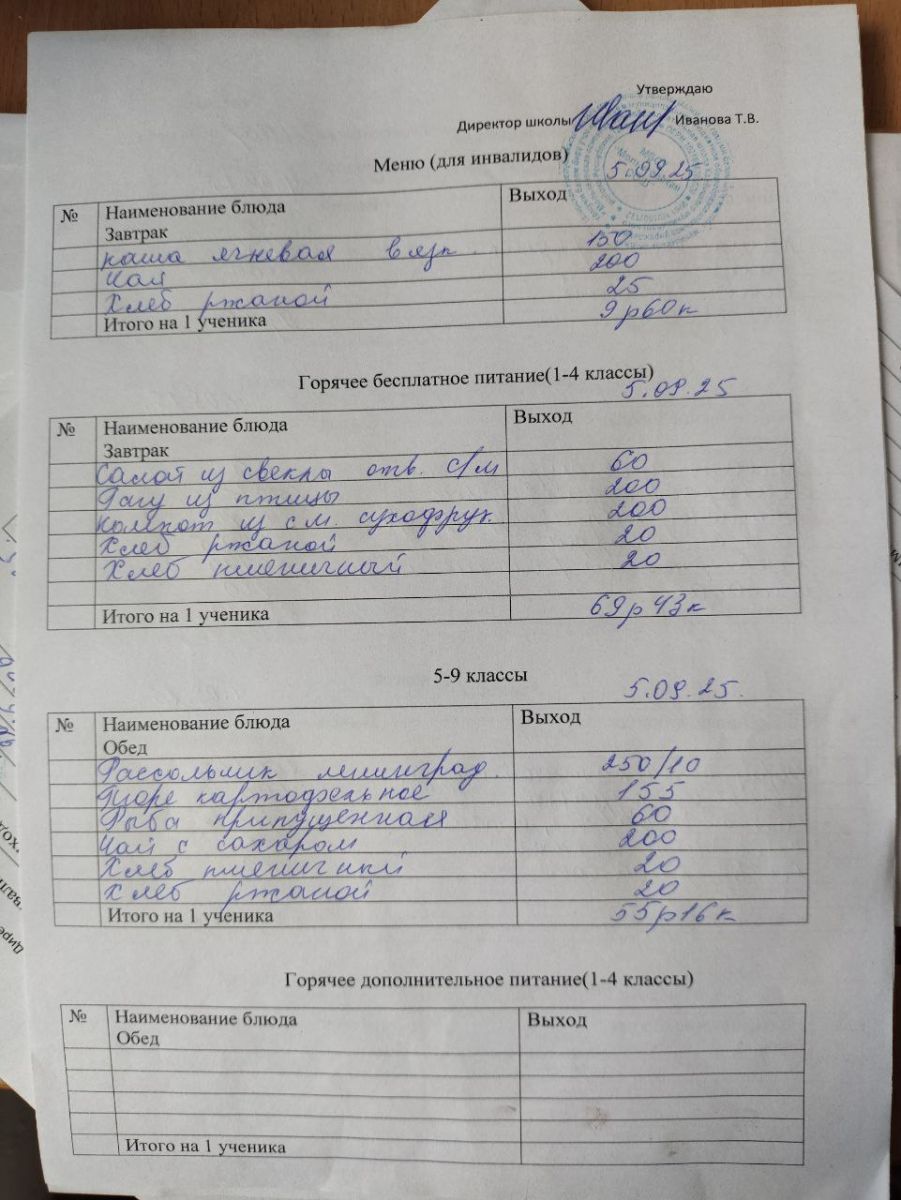 Утверждаю
Директор школы Иванова Т.В.
Меню (для инвалидов) 5 09.25
№ Наименование блюда Выход
Завтрак
каша ячневая вязк. 150
Чай 200
Хлеб ржаной 25
Итого на 1 ученика 9р60к
Горячее бесплатное питание(1-4 классы)
5.09.25
№ Наименование блюда Выход
Завтрак
Салат из свеклы отв. с/м 60
Рагу из птицы 200
Компот из см. сухофрук. 200
Хлеб ржаной 20
Хлеб пшеничный 20
Итого на 1 ученика 69р43к
5-9 классы
5.09.25.
№ Наименование блюда Выход
Обед
Рассольник ленинград. 250/10
Пюре картофельное 155
Рыба припущенная 60
Чай с сахаром 200
Хлеб пшеничный 20
Хлеб ржаной 20
Итого на 1 ученика 55р16к
Горячее дополнительное питание(1-4 классы)
№ Наименование блюда Выход
Обед
Итого на 1 ученика